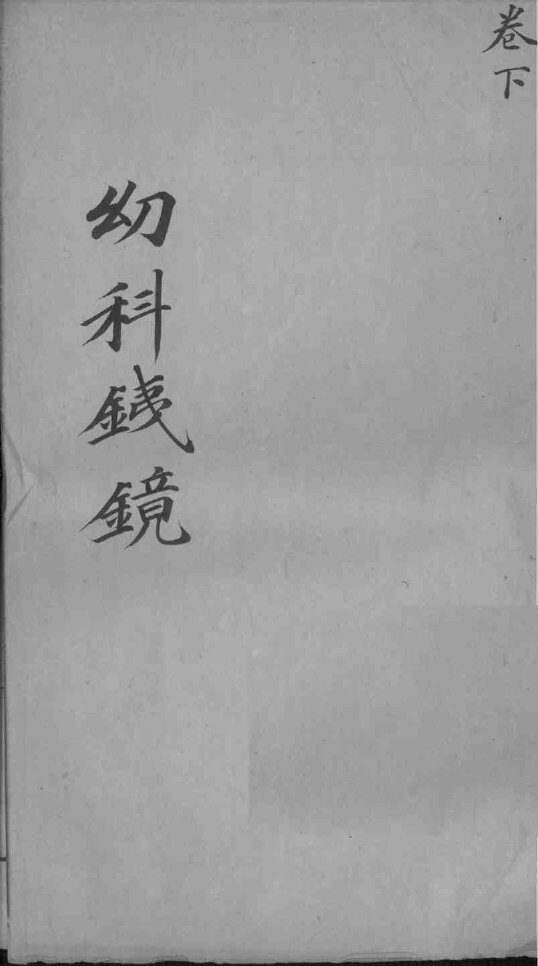 卷下
幼科鐵鏡